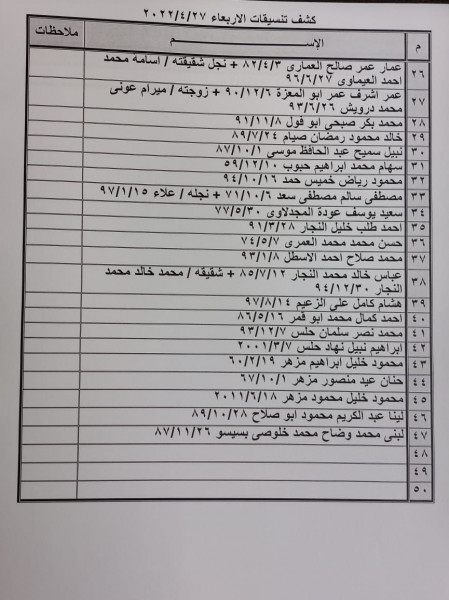 كشف تنسيقات الاربعاء ٢٠٢٢/٤/٢٧
م الإســـــــم ملاحظات
٢٦ عمار عمر صالح العماري ٨٢/٤/٣ + نجل شقيقته / اسامه محمد
احمد العيماوي ٩٦/٦/٢٧
٢٧ عمر اشرف عمر ابو المعزة ٩٠/١٢/٦ + زوجته / ميرام عونى
محمد درويش ٩٣/٦/٢٦
٢٨ محمد بكر صبحي ابو فول ٩١/١١/٨
٢٩ خالد محمود رمضان صيام ٨٩/٧/٢٤
٣٠ نبيل سميح عبد الحافظ موسي ٨٧/١٠/١
٣١ سهام محمد ابراهيم حبوب ٥٩/١٢/١٠
٣٢ محمود رياض خميس حمد ٩٤/١٠/١٦
٣٣ مصطفى سالم مصطفى سعد ٧١/١٠/٦ + نجله / علاء ٩٧/١/١٥
٣٤ سعيد يوسف عودة المجدلاوى ٧٧/٥/٣٠
٣٥ احمد طلب خليل النجار ٩١/٣/٢٨
٣٦ حسن محمد محمد العمرى ٧٤/٥/٧
٣٧ محمد صلاح احمد الاسطل ٩٣/١/٨
٣٨ عباس خالد محمد النجار ٨٥/٧/١٢ + شقيقه / محمد خالد محمد
النجار ٩٤/١٢/٣٠
٣٩ هشام كامل على الزعيم ٩٧/٨/١٤
٤٠ احمد كمال محمد ابو قمر ٨٦/٥/١٦
٤١ محمد نصر سلمان حلس ٩٣/١٢/٧
٤٢ ابراهيم نبيل نهاد حلس ٢٠٠١/٣/٧
٤٣ محمود خليل ابراهيم مزهر ٦٠/٢/١٩
٤٤ حنان عيد منصور مزهر ٦٧/١٠/١
٤٥ محمود خليل محمود مزهر ٢٠١١/٦/١٨
٤٦ لينا عبد الكريم محمود ابو صلاح ٨٩/١٠/٢٨
٤٧ لبنى محمد وضاح محمد خلوصى بسيسو ٨٧/١١/٢٦
٤٨
٤٩
٥٠